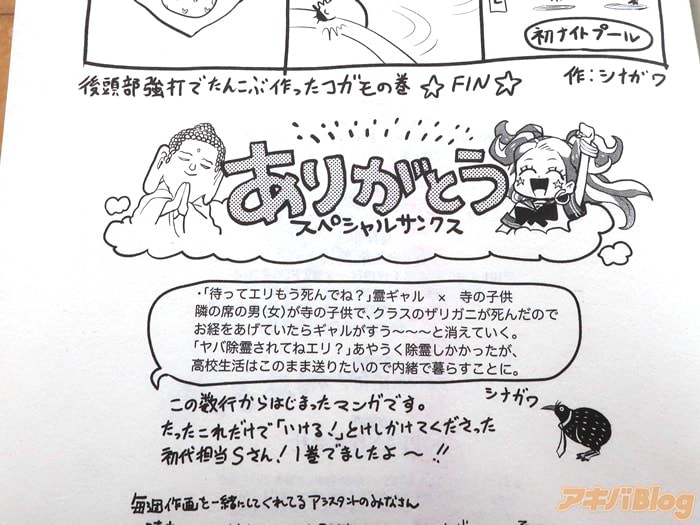 初ナイトプール
後頭部強打でたんこぶ作ったコガモの巻 ☆FIN☆
作:シナガワ
ありがとう
スペシャルサンクス
・「待ってエリもう死んでね?」霊ギャル × 寺の子供
隣の席の男(女)が寺の子供で、クラスのザリガニが死んだので
お経をあげていたらギャルがすう〜〜〜と消えていく。
「ヤバ除霊されてねエリ?」あやうく除霊しかかったが、
高校生活はこのまま送りたいので内緒で暮らすことに。
シナガワ
この数行からはじまったマンガです。
たったこれだけで「いける!」とけしかけてくださった
初代担当Sさん!1巻でましたよ〜!!
毎週作画を一緒にしてくれてるアシスタントのみなさん
アキバBlog